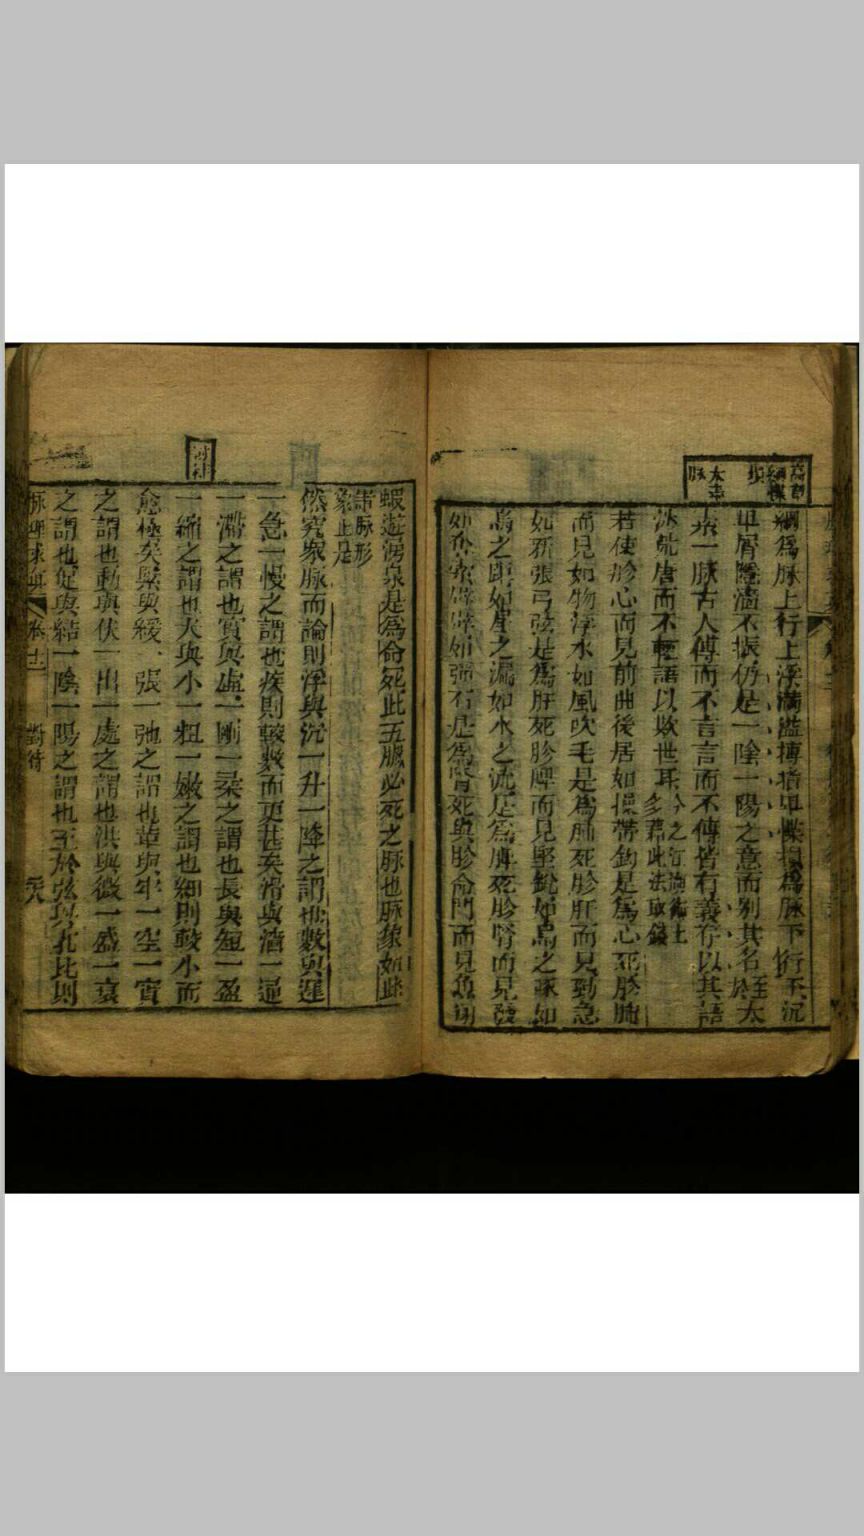 綱爲脉上行上浮滿溢
卑屑隱濇不振仍是一陰一陽之意而别其名
一脉古人傳而不言言而不傳皆有義存以其語
唐而不輕語以欺世耳
若使胗心而見前曲後居如操帶鈎是爲心死胗肺
而見如物浮水如風吹毛是爲肺死胗肝而見勁急
如新張弓弦是爲肝死胗脾而見堅銳如烏之啄如
烏之距如屋之漏如水之流是爲脾死胗腎而見發
如奪索辟辟如彈石是爲腎死與胗命門而見魚翔
蝦遊湧泉是爲命死此五臟必死之脉也脉象如此
諸脉形
象止是
然究衆脉而論則浮與沉一升一降之謂也數與遲
一急一慢之謂也疾則較數而更甚矣滑與濇一通
一滯之謂也實與虛一剛一柔之謂也長與短一盈
一縮之謂也大與小一粗一嫩之謂也細則較小而
愈極矣緊與緩一張一弛之謂也革與牢一空一實
之謂也動與伏一出一處之謂也洪與微一盛一衰
之謂也促與結一陰一陽之謂也至於弦與芤比則
脉理求真
卷十二
對待